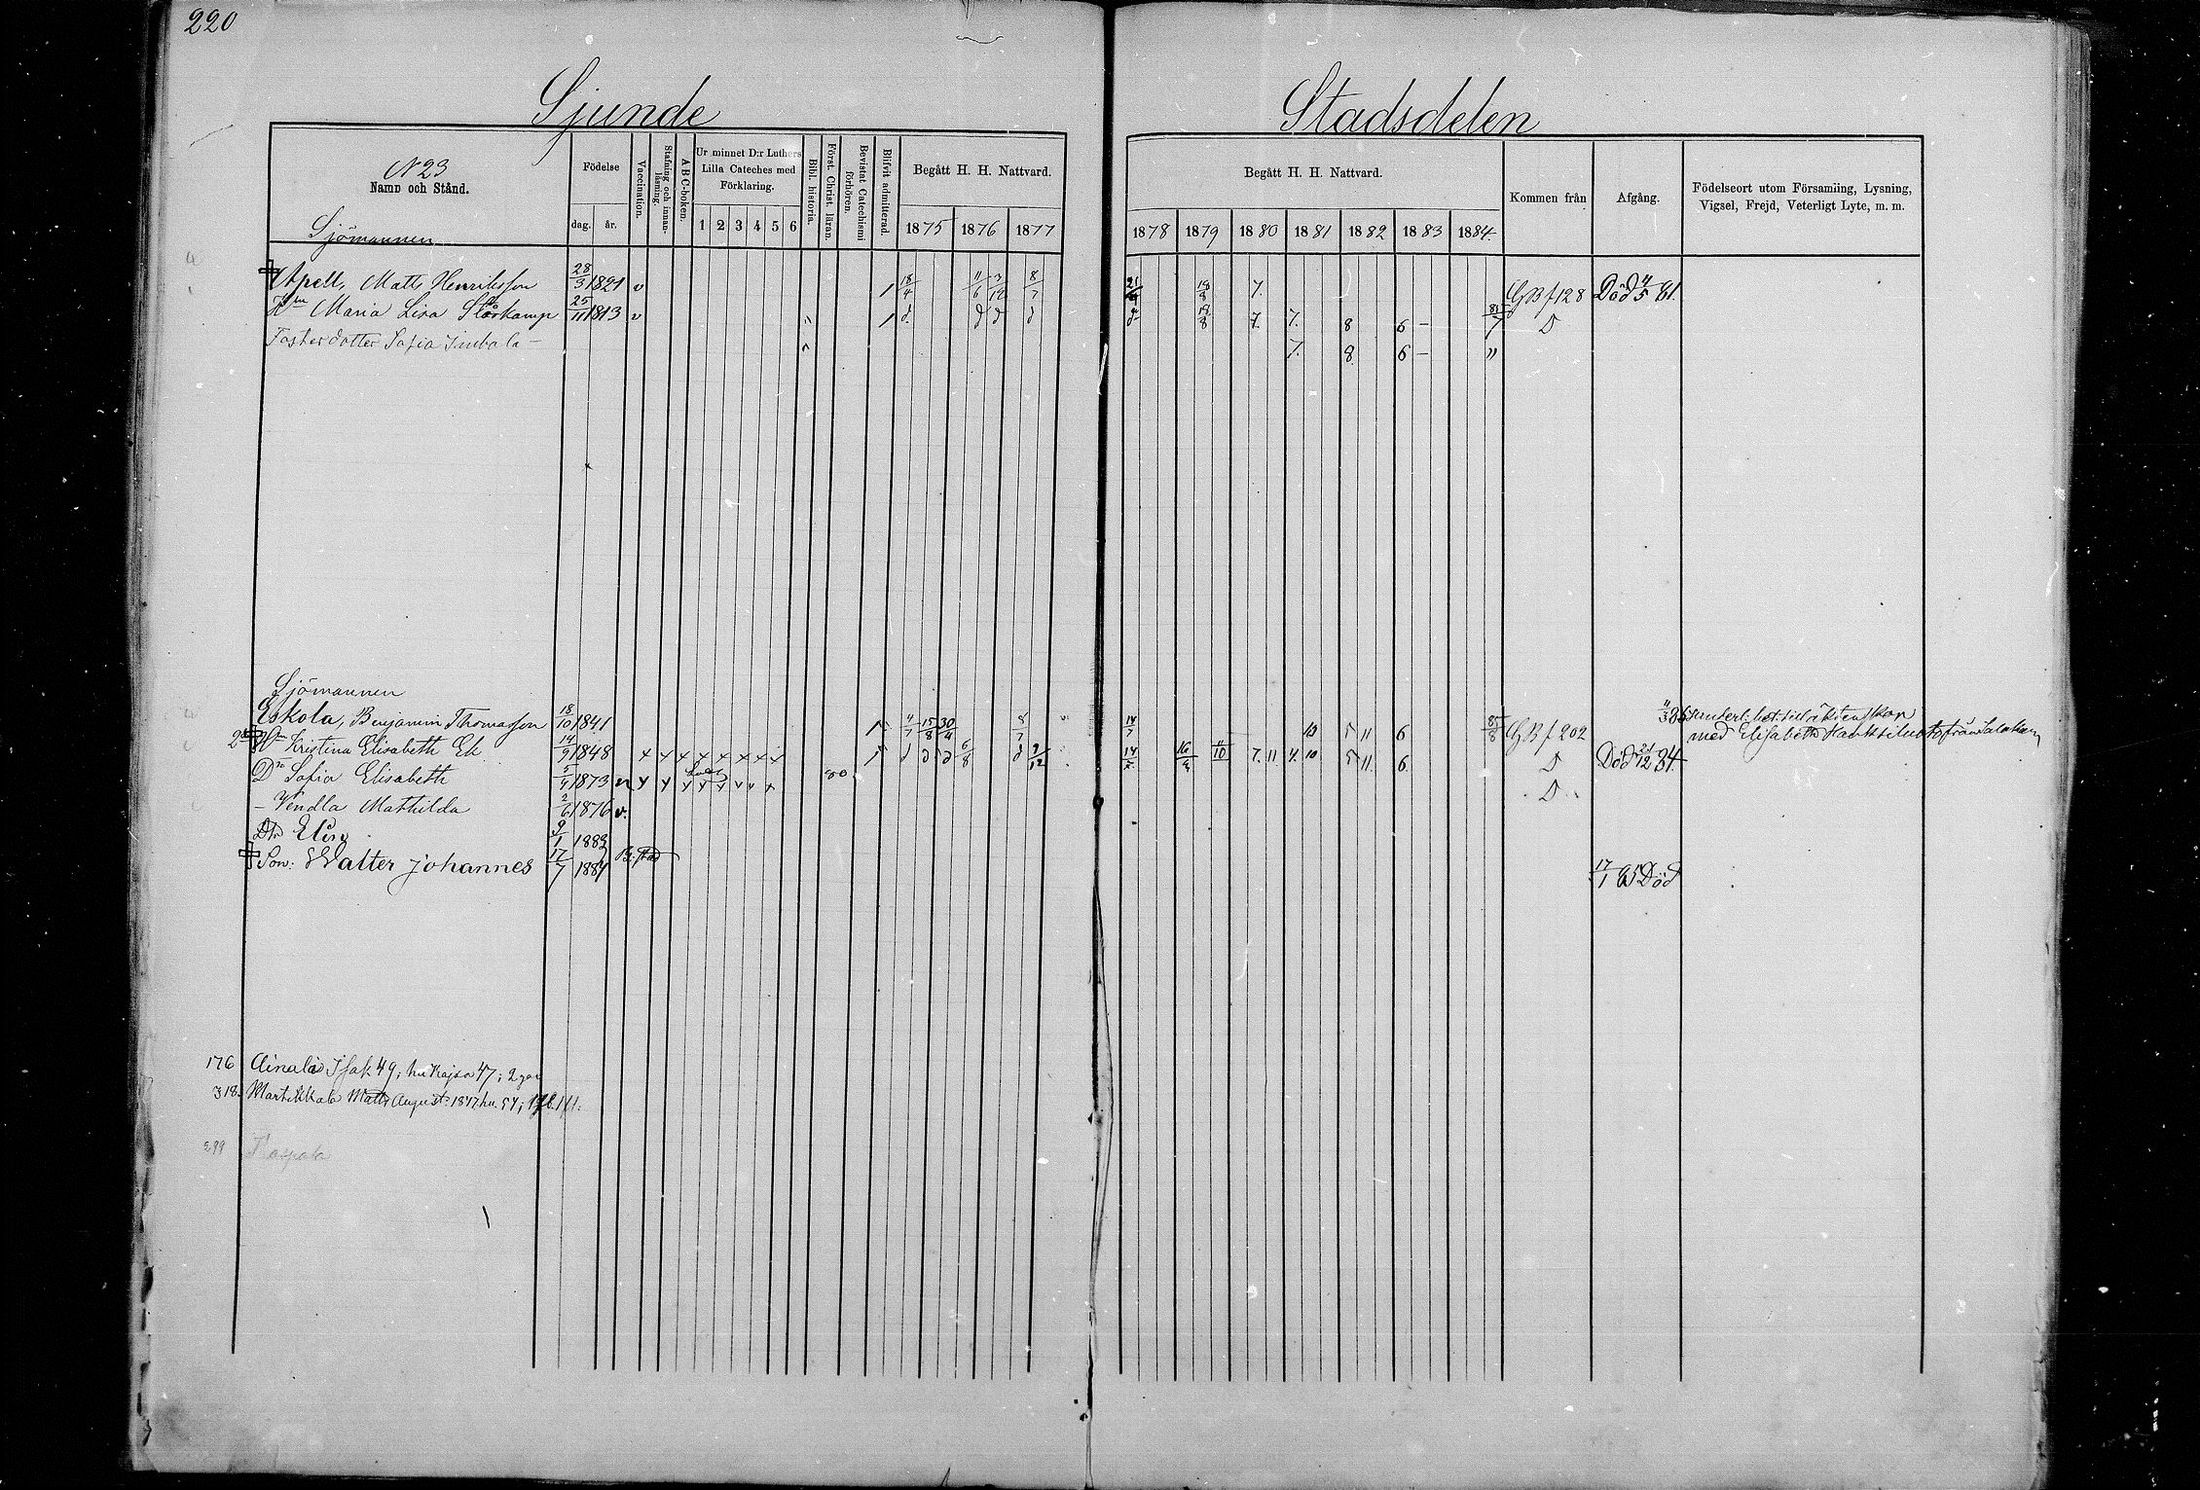 220
Sjunde Stadsdelen
N 23
Namn och Stånd.
Födelse
dag. år.
Vaccination.
Stafning och innanläsning.
ABC-boken.
Ur minnet D:r Luthers
Lilla Cateches med
Förklaring.
1 2 3 4 5 6
Bibl. historia.
Först. Christ. läran.
Bevistat Catechismi förhören.
Blifvit admitterad.
Begått H. H. Nattvard.
1875 1876 1877
Begått H. H. Nattvard.
1878 1879 1880 1881 1882 1883 1884.
Kommen från
Afgång.
Födelseort utom Församling, Lysning,
Vigsel, Frejd, Veterligt Lyte, m. m.
Sjömannen
Apell, Matts Henriksson 28/3 1821 v 1 18/4 11/6 3/12 8/7 18/8 7. GB f 128 Död 4/5 81.
Hn Maria Lisa Storkamp 25/11 1813 v 1 d. d d d 18/8 7. 7. 8 6 – 85/7 D
Fosterdotter Sofia 7. 8 6 – "
Sjömannen
Eskola, Benjamin Thomasson 18/10 1841 4/7 15/8 30/4 8/7 14/7 10 5 11 6 85/8 GB f 202
Hn Kristina Elisabeth Ek 14/9 1848 d d d 6/8 d 9/12 11/10 7. 11 7. 10 5 11. 6. D Död 12 84.
med Elisabeth från
Dr Sofia Elisabeth 5/4 1873 D
– Vendla Mathilda 2/6 1876 v.
Dtr Elin 9/1 1883
Son: Walter Johannes 17/7 1884 17/1 85 Död
176 Ainala Isak 49; hu Kajsa 47;
318. Martikkala Matts August: 1847 hu. 54;
299